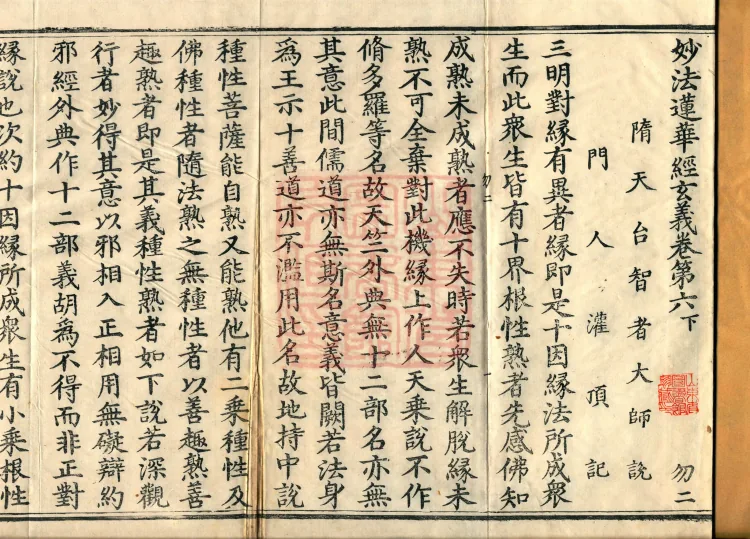 妙法蓮華經玄義卷第六下 勿二
隋天台智者大師說
門人灌頂記
三明對緣有異者緣即是十因緣法所成衆
生而此衆生皆有十界根性熟者先感佛知
勿二
成熟未成熟者應不失時若衆生解脫緣未
熟不可全棄對此機緣上作人天乘說不作
脩多羅等名故天竺外典無十二部名亦無
其意此間儒道亦無斯名意義皆闕若法身
爲王示十善道亦不濫用此名故地持中說
種性菩薩能自熟又能熟他有二乘種性及
佛種性者隨法熟之無種性者以善趣熟善
趣熟者即是其義種性熟者如下說若深觀
行者妙得其意以邪相入正相用無礙辯約
邪經外典作十二部義胡爲不得而非正對
緣說也次約十因緣所成衆生有小乘根性